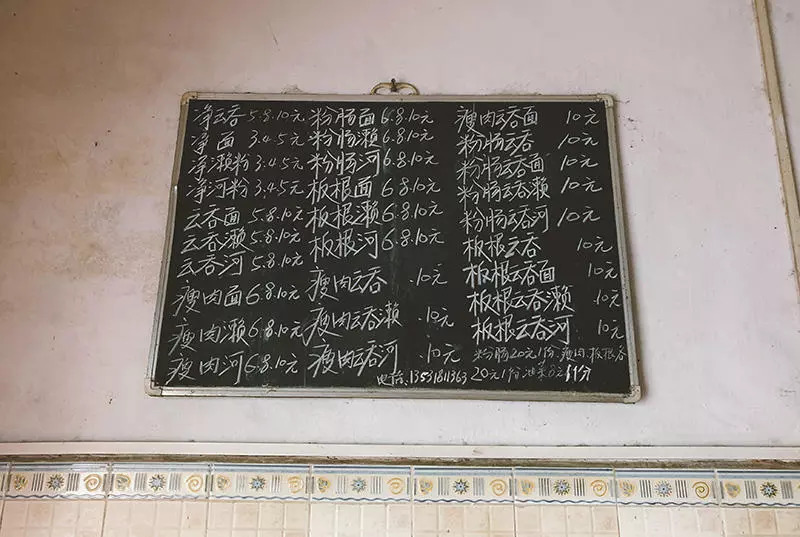 净云吞 5.8.10元
净面 3.4.5元
净濑粉 3.4.5元
净河粉 3.4.5元
云吞面 5.8.10元
云吞濑 5.8.10元
云吞河 5.8.10元
瘦肉面 6.8.10元
瘦肉濑 6.8.10元
瘦肉河 6.8.10元
粉肠面 6.8.10元
粉肠濑 6.8.10元
粉肠河 6.8.10元
板根面 6.8.10元
板根濑 6.8.10元
板根河 6.8.10元
瘦肉云吞 .10元
瘦肉云吞濑 .10元
瘦肉云吞河 .10元
瘦肉云吞面 10元
粉肠云吞 10元
粉肠云吞面 10元
粉肠云吞濑 10元
粉肠云吞河 10元
板根云吞 10元
板根云吞面 10元
板根云吞濑 .10元
板根云吞河 10元
粉肠20元1份.瘦肉.板根各
20元1份油菜8元1份
电话.13531811363